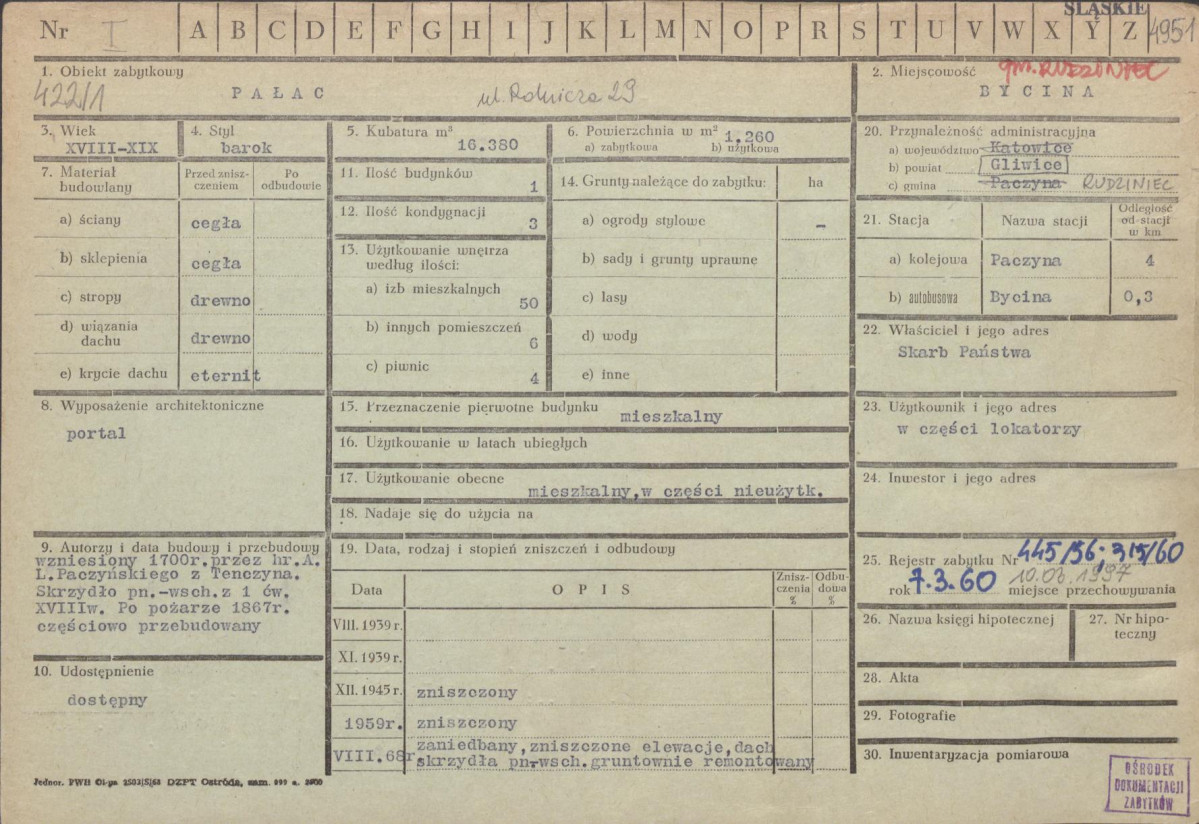 ŚLĄSKIE
Nr I A B C D E F G H I J K L M N O P R S T U V W X Y Z 4951
1. Obiekt zabytkowy
422/1
PAŁAC ul. Rolnicza 29
2. Miejscowość gm. RUDZINIEC
BYCINA
3. Wiek
XVIII-XIX
4. Styl
barok
5. Kubatura m³
16.380
6. Powierzchnia w m² 1.260
a) zabytkowa b) użytkowa
7. Materiał budowlany
Przed zniszczeniem
Po odbudowie
a) ściany cegła
b) sklepienia cegła
c) stropy drewno
d) wiązania dachu drewno
e) krycie dachu eternit
8. Wyposażenie architektoniczne
portal
9. Autorzy i data budowy i przebudowy
wzniesiony 1700r.przez hr.A.
L.Paczyńskiego z Tenczyna.
Skrzydło pn.-wsch.z 1 ćw.
XVIIIw. Po pożarze 1867r.
częściowo przebudowany
10. Udostępnienie
dostępny
11. Ilość budynków
1
12. Ilość kondygnacji
3
13. Użytkowanie wnętrza
według ilości:
a) izb mieszkalnych
50
b) innych pomieszczeń
6
c) piwnic
4
14. Grunty należące do zabytku: ha
a) ogrody stylowe -
b) sady i grunty uprawne
c) lasy
d) wody
e) inne
15. Przeznaczenie pierwotne budynku mieszkalny
16. Użytkowanie w latach ubiegłych
17. Użytkowanie obecne
mieszkalny,w części nieużytk.
18. Nadaje się do użycia na
19. Data, rodzaj i stopień zniszczeń i odbudowy
Data OPIS Zniszczenia % Odbudowa %
VIII. 1939 r.
XI. 1939 r.
XII. 1945 r. zniszczony
1959r. zniszczony
VIII.68r zaniedbany,zniszczone elewacje,dach
skrzydła pn-wsch.gruntownie remontowany
20. Przynależność administracyjna
a) województwo Katowice
b) powiat Gliwice
c) gmina Paczyna RUDZINIEC
21. Stacja Nazwa stacji Odległość od stacji w km
a) kolejowa Paczyna 4
b) autobusowa Bycina 0,3
22. Właściciel i jego adres
Skarb Państwa
23. Użytkownik i jego adres
w części lokatorzy
24. Inwestor i jego adres
25. Rejestr zabytku Nr 445/56; 315/60
rok 7.3.60 10.03.1997 miejsce przechowywania
26. Nazwa księgi hipotecznej
27. Nr hipoteczny
28. Akta
29. Fotografie
30. Inwentaryzacja pomiarowa
OŚRODEK
DOKUMENTACJI
ZABYTKÓW